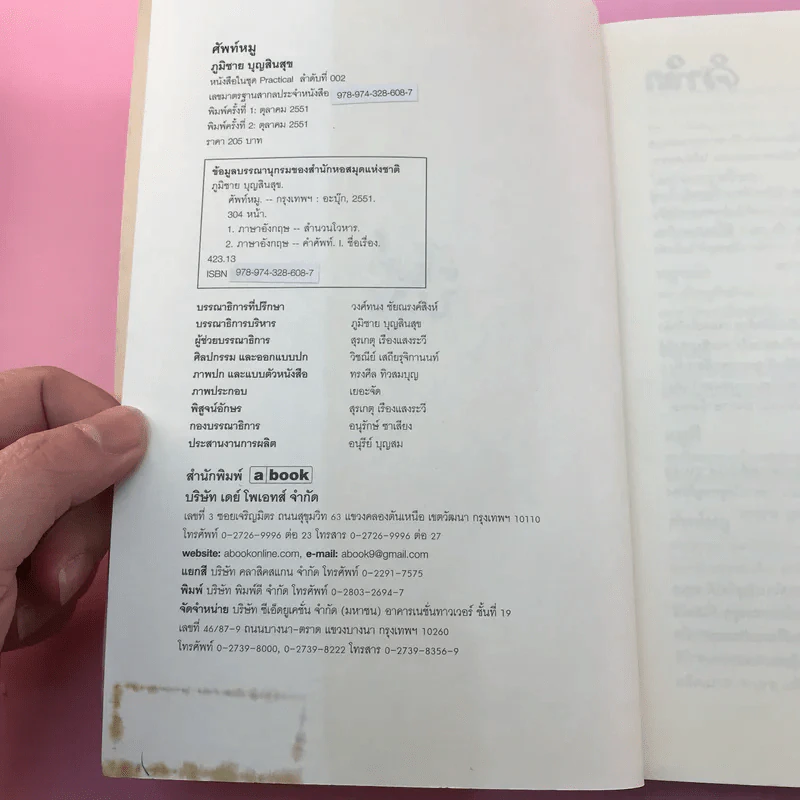 ศัพท์หมู
ภูมิชาย บุญสินสุข
หนังสือในชุด Practical ลำดับที่ 002
เลขมาตรฐานสากลประจำหนังสือ 978-974-328-608-7
พิมพ์ครั้งที่ 1: ตุลาคม 2551
พิมพ์ครั้งที่ 2: ตุลาคม 2551
ราคา 205 บาท
ข้อมูลบรรณานุกรมของสำนักหอสมุดแห่งชาติ
ภูมิชาย บุญสินสุข.
ศัพท์หมู. -- กรุงเทพฯ : อะบุ๊ก, 2551.
304 หน้า.
1. ภาษาอังกฤษ -- สำนวนโวหาร.
2. ภาษาอังกฤษ -- คำศัพท์. I. ชื่อเรื่อง.
423.13
ISBN 978-974-328-608-7
บรรณาธิการที่ปรึกษา วงศ์ทนง ชัยณรงค์สิงห์
บรรณาธิการบริหาร ภูมิชาย บุญสินสุข
ผู้ช่วยบรรณาธิการ สุรเกตุ เรืองแสงระวี
ศิลปกรรม และออกแบบปก วิชณีย์ เสถียรุจิกานนท์
ภาพปก และแบบตัวหนังสือ ทรงศีล ทิวสมบุญ
ภาพประกอบ เยอะจัด
พิสูจน์อักษร สุรเกตุ เรืองแสงระวี
กองบรรณาธิการ อนุรักษ์ ซาเสียง
ประสานงานการผลิต อนุรีย์ บุญสม
สำนักพิมพ์ a book
บริษัท เดย์ โพเอทส์ จำกัด
เลขที่ 3 ซอยเจริญมิตร ถนนสุขุมวิท 63 แขวงคลองตันเหนือ เขตวัฒนา กรุงเทพฯ 10110
โทรศัพท์ 0-2726-9996 ต่อ 23 โทรสาร 0-2726-9996 ต่อ 27
website: abookonline.com, e-mail: abook9@gmail.com
แยกสี บริษัท คลาสิคสแกน จำกัด โทรศัพท์ 0-2291-7575
พิมพ์ บริษัท พิมพ์ดี จำกัด โทรศัพท์ 0-2803-2694-7
จัดจำหน่าย บริษัท ซีเอ็ดยูเคชั่น จำกัด (มหาชน) อาคารเนชั่นทาวเวอร์ ชั้นที่ 19
เลขที่ 46/87-9 ถนนบางนา-ตราด แขวงบางนา กรุงเทพฯ 10260
โทรศัพท์ 0-2739-8000, 0-2739-8222 โทรสาร 0-2739-8356-9